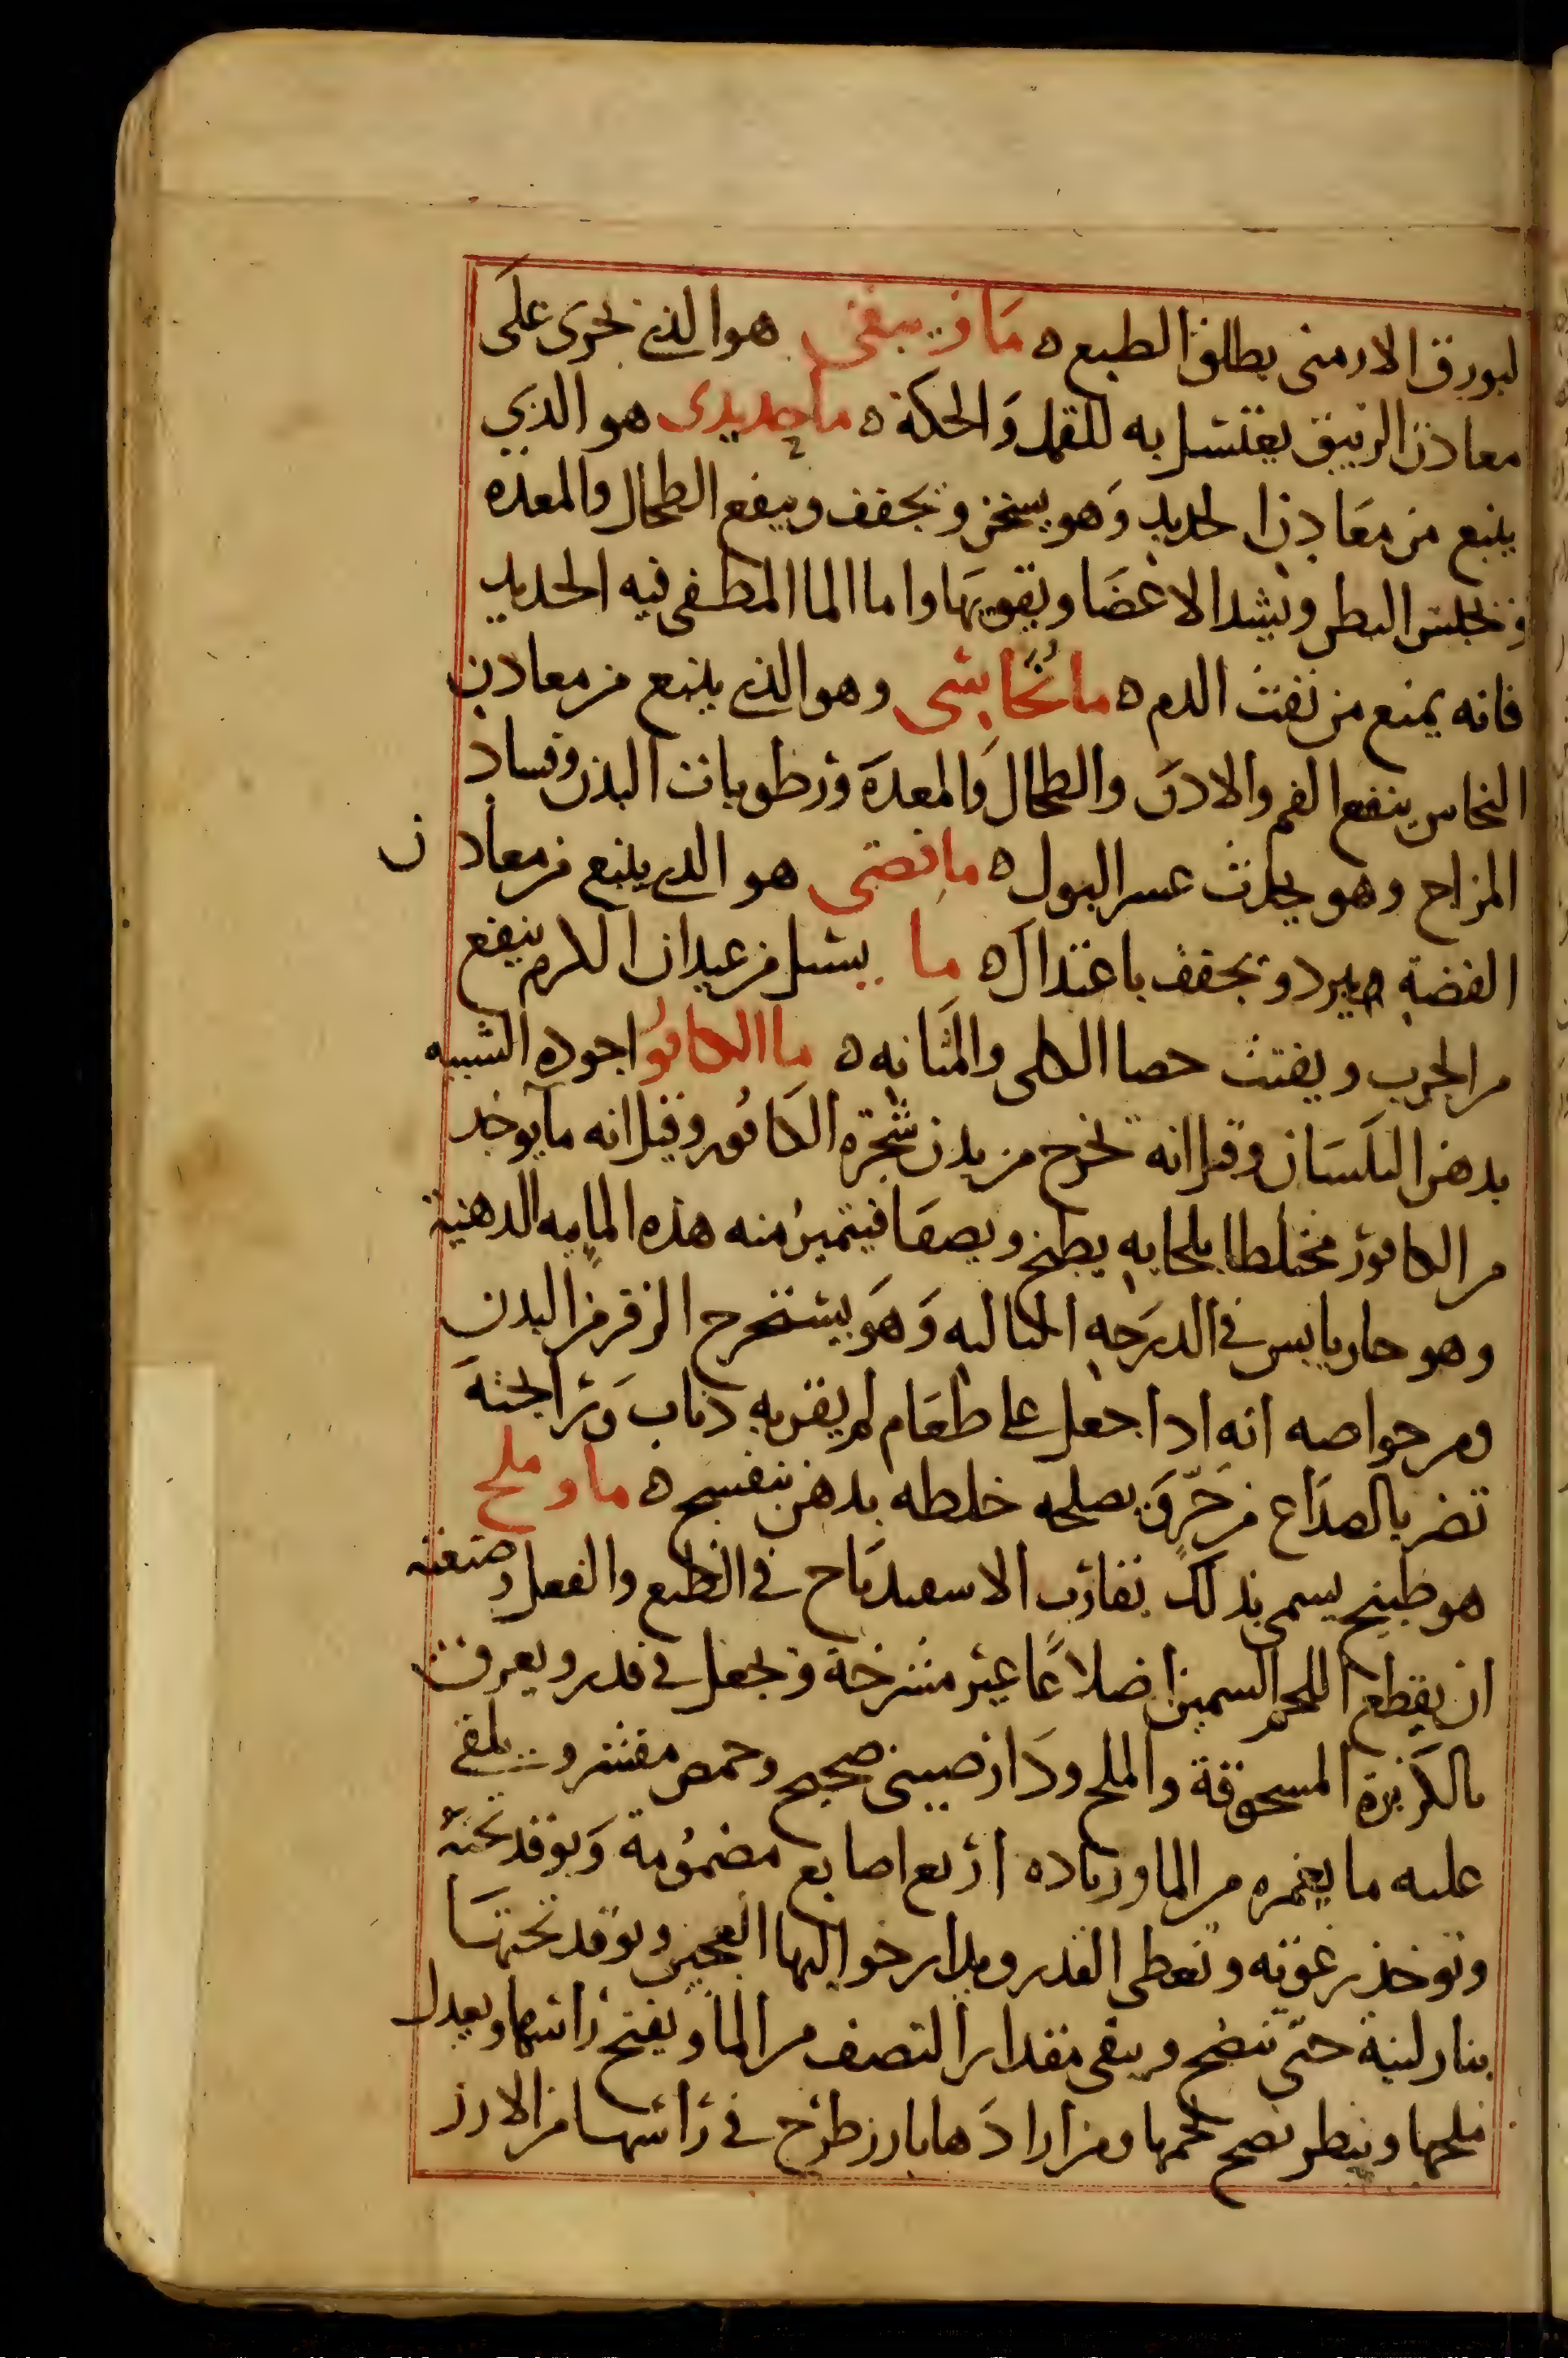 لبورق الارمنى يطلق الطبع ه ما زيبقى هو الذي يجرى على
معادن الزيبق يغتسل به للقمل والحكة ه ما حديدى هو الذي
ينبع من معادن الحديد وهو يسخن ويجفف وينفع الطحال والمعده
ويحبس البطن ويشد الاعضا ويقويها واما الما المطفى فيه الحديد
فانه يمنع من نفث الدم ه ما نُحَاسى وهو الذي ينبع من معادن
النحاس ينفع الفم والاذن والطحال والمعدة ورطوبات البدن وفساد
المزاج وهو يحدث عسر البول ه ما فضى هو الذي ينبع من معادن
الفضة يبرد ويجفف باعتدال ه ما يسيل من عيدان الكرم ينفع
من الجرب ويفتت حصا الكلى والمثانه ه ما الكافور اجوده الشبيه
بدهن البلسان وقيل انه يخرج من بدن شجرة الكافور وقيل انه ما يوخد
من الكافور مختلطا بلحايه يطبخ ويصفا فيتميز منه هذه المايه الدهنية
وهو حار يابس في الدرجه الثالثه وهو يستخرج الزفر من البدن
ومن خواصه انه ادا جعل على طعام لم يقربه ذباب ورائحته
تضر بالصداع من حر ويصلحه خلطه بدهن بنفسج ه ما وملح
هو طبيخ يسمى بذلك يقارب الاسفيدباج في الطبع والفعل وصنعته
ان يقطع اللحم السمين اضلاعًا غير مشرحة ويجعل في قدر ويعرق
بالكزبرة المسحوقة والملح ودار صيني صحيح وحمص مقشر ويلقى
عليه ما يغمره من الما وزياده اربع اصابع مضمُومة ويوقد تحته
وتوخذ رغوته وتغطى القدر ويدار حواليها العجين ويوقد تحتها
بنار لينة حتى تنضج ويبقى مقدار النصف من الما ويفتح راسها ويعدل
ملحها وينظر نضج لحمها ومن ارادها بارز طرح في راسها من الارز